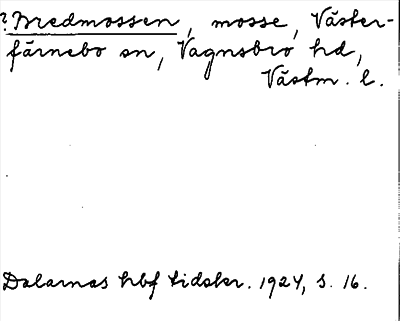 ? Bredmossen, mosse, Väster-
färnebo sn, Vagnsbro hd,
Västm. l.
Dalarnas hbf tidskr. 1924, s. 16.